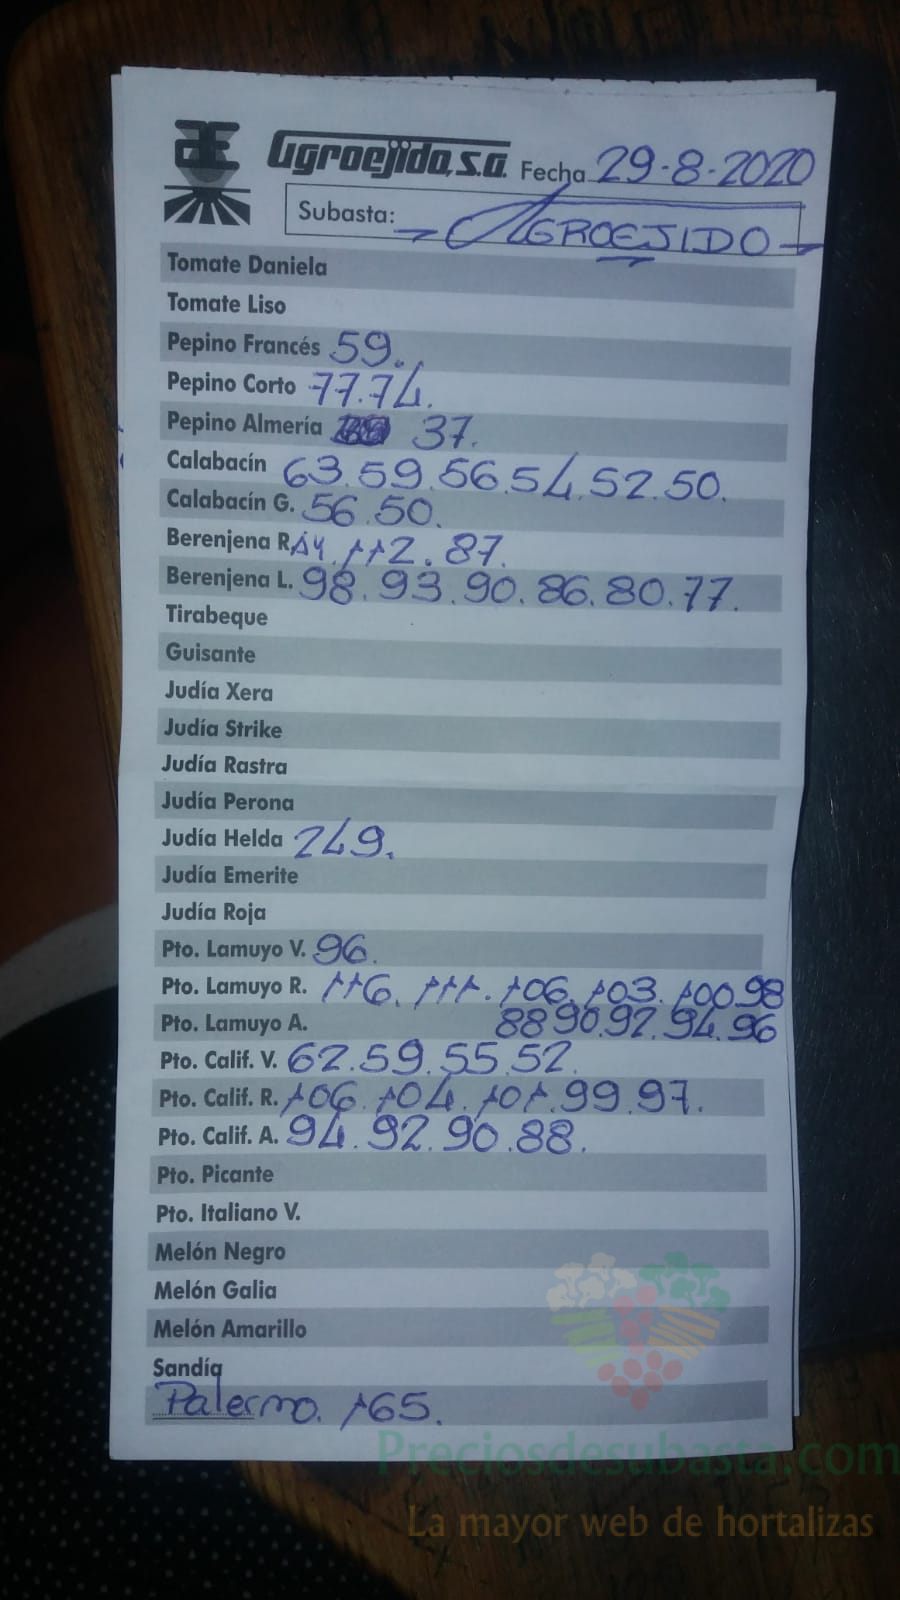 Agroejido, S.A. Fecha 29-8-2020
Subasta: AGROEJIDO
Tomate Daniela
Tomate Liso
Pepino Francés 59.
Pepino Corto 77.74.
Pepino Almería 37.
Calabacín 63.59.56.54.52.50.
Calabacín G. 56.50.
Berenjena RAY. 112.87.
Berenjena L. 98.93.90.86.80.77.
Tirabeque
Guisante
Judía Xera
Judía Strike
Judía Rastra
Judía Perona
Judía Helda 249.
Judía Emerite
Judía Roja
Pto. Lamuyo V. 96.
Pto. Lamuyo R. 116.111.106.103.100.98
Pto. Lamuyo A. 88 90.92.94.96
Pto. Calif. V. 62.59.55.52.
Pto. Calif. R. 106.104.101.99.97.
Pto. Calif. A. 94.92.90.88.
Pto. Picante
Pto. Italiano V.
Melón Negro
Melón Galia
Melón Amarillo
Sandía
Palermo. 165.
Preciosdesubasta.com
La mayor web de hortalizas